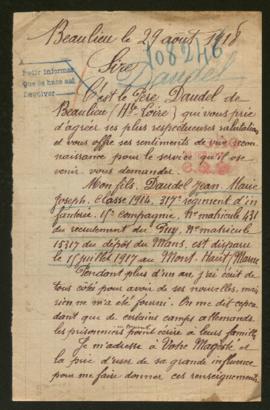 Beaulieu le 29 août 1918
108246
Sire
Daudel
C'est le Père Daudel de
Beaulieu (Hte Loire) qui vous prie
d'agréer ses plus respectueuses salutations
et vous offre ses sentiments de vive recon
naissance pour le service qu'il ose
venir vous demander.
Mon fils, Daudel Jean Marie
Joseph, classe 1914, 317e régiment d'in
fanterie, 15e Compagnie, No matricule 431
du recrutement du Puy, No matricule
15317 du dépôt du Mans, est disparu
le 15 juillet 1917 au Mont-Haut, Marne
Pendant plus d'un an j'ai écrit de
tous côtés pour avoir de ses nouvelles, mais
rien ne m'a été fourni. On me dit cepen
dant que de certains camps allemands
les prisonniers ne peuvent point écrire à leurs familles
Je m'adresse à Votre Majesté et
la prie d'user de sa grande influence
pour me faire donner ces renseignements,